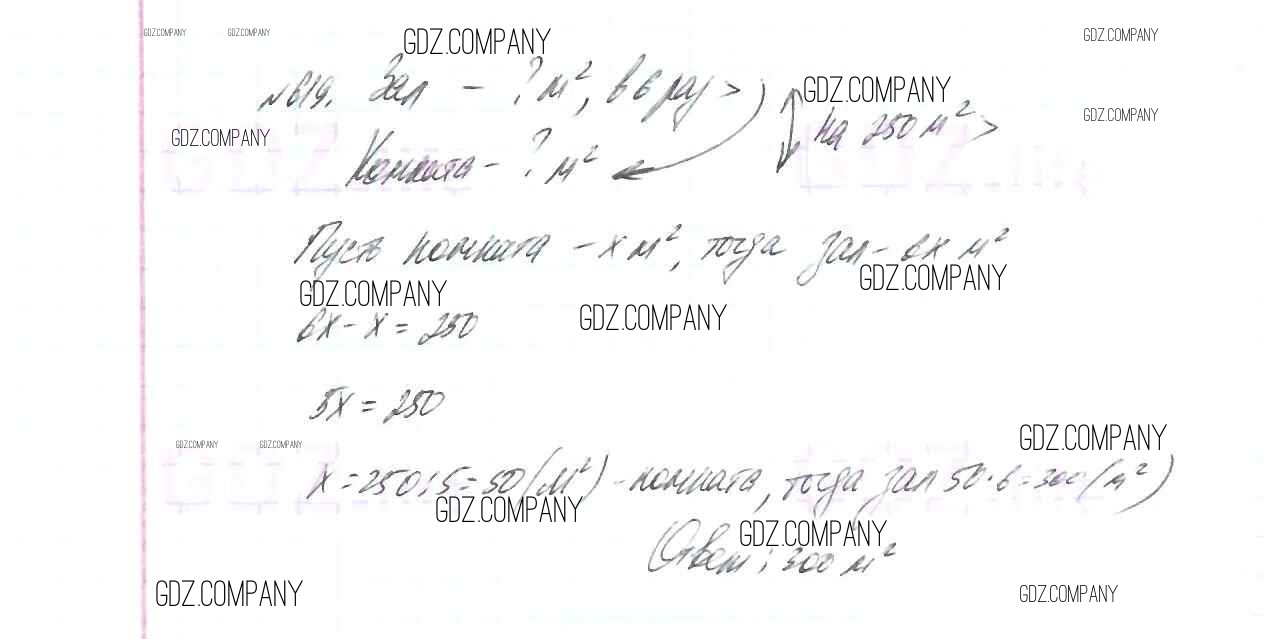 GDZ.COMPANY GDZ.COMPANY GDZ.COMPANY GDZ.COMPANY
№619. Зал - ? м², в 6 раз > GDZ.COMPANY
GDZ.COMPANY на 250 м² > GDZ.COMPANY
Комната - ? м²
Пусть комната - x м², тогда зал - 6x м²
GDZ.COMPANY GDZ.COMPANY GDZ.COMPANY
6x - x = 250
5x = 250
GDZ.COMPANY GDZ.COMPANY GDZ.COMPANY
x = 250 : 5 = 50 (м²) - комната, тогда зал 50 · 6 = 300 (м²)
GDZ.COMPANY GDZ.COMPANY
Ответ: 300 м²
GDZ.COMPANY GDZ.COMPANY